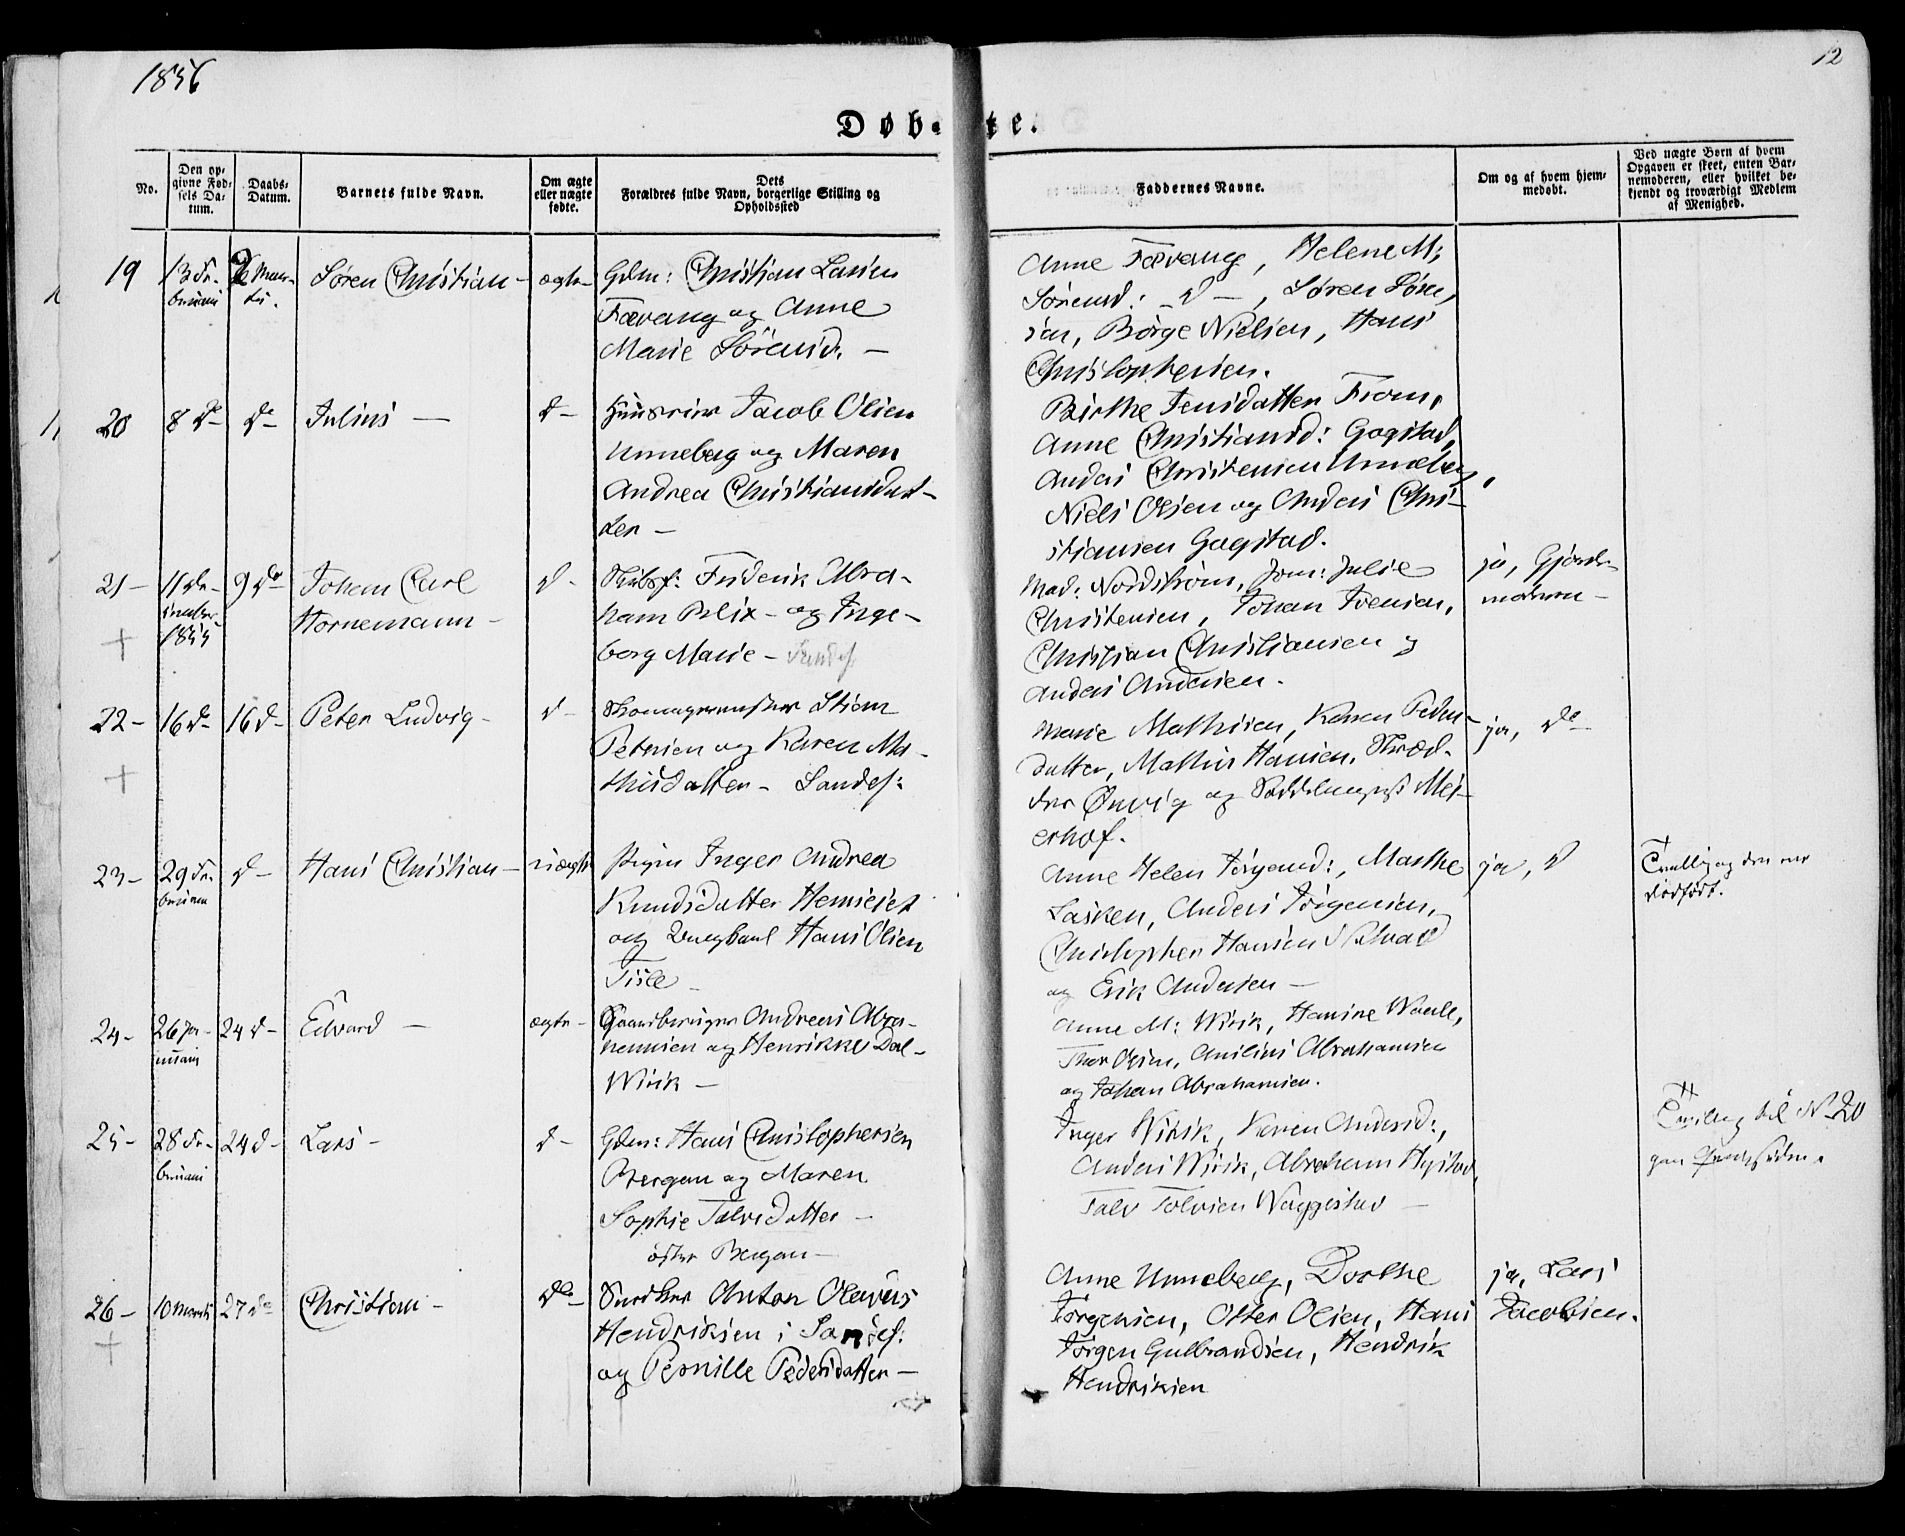 1856
12
Døbte.
No.
Den op-
givne Fød-
sels Da-
tum.
Daabs-
Datum.
Barnets fulde Navn.
Om ægte
eller uægte
fødte.
Dets
Forældres fulde Navn, borgerlige Stilling og
Opholdssted
Faddernes Navne.
Om og af hvem hjem-
medøbt.
Ved uægte Børn af hvem
Opgaven er skeet, enten Bar-
nemoderen, eller hvilket be-
kjendt og troværdigt Medlem
af Menighed.
19
13 Fe-
bruari
2 Mar-
tii.
Søren Christian -
ægte -
Gdm: Christian Larsen
Fævang og Anne
Marie Sørensd. -
Anne Fævang, Helene M:
Sørensd: - d -, Søren Søren-
sen, Børge Nielsen, Hans
Christophersen.
20
8 do
do
Julius -
d -
Huusmm Jacob Olsen
Unneberg og Maren
Andrea Christiansdat-
ter -
Birthe Jensdatter From,
Anne Christiansd: Gogstad,
Anders Christensen Unneberg,
Niels Olsen og Anders Chri-
stiansen Gogstad.
21 -
11 De-
cember
1855
9 do
Johan Carl
Hornemann -
d -
Skibsf: Frederik Abra-
ham Blix - og Inge-
borg Marie - Sandef
Mad: Nordstrøm, Jom: Julie
Christensen, Johan Svensen,
Christian Christiansen og
Anders Andersen.
ja, Gjorde-
moderen -
22 -
16 d -
16 d -
Peter Ludvig -
d -
Skomagermester
Petersen og Karen Ma-
thisdatter - Sandef:
Marie Mathisen, Karen Peders-
datter, Mathis Hansen, Skræd-
der Ørvig og Meierhof.
ja, do
23 -
29 Fe-
bruari
d -
Hans Christian -
uægte
Pigen Inger Andrea
Knudsdatter
og Ungkarl Hans Olsen
Anne Helen Jørgensd:, Marthe
Larsen, Anders Jørgensen,
Christopher Hansen
og Erik Andersen -
ja, d
Tvilling den ene
dødført.
24 -
26 Ja-
nuari
24 d -
Edvard -
ægte -
Gaardbruger Andreas Abra-
hamsen og Henrikke Dal-
Wirik -
Anne M: Wirik, Hanine
Thor Olsen, Abrahamsen
og Johan Abrahamsen.
25 -
28 Fe-
bruari
24 d -
Lars -
d -
Gdm: Hans Christophersen
Bergan og Maren
Sophie Talvsdatter -
øster Bergan -
Inger Wirik, Karen Andersd:,
Anders Wirik, Abraham
Talv Tolvsen
Tvilling til No 20
paa
26 -
10 Martii
27 do
Christian -
do -
Snedker Anton Olavus
Hendriksen i Sandef:
og Pernille Pedersdatter -
Anne Unneberg, Dorthe
Jørgensen, Otter Olsen, Hans
Jørgen Gulbrandsen, Hendrik
Hendriksen
ja, Lars
Jacobsen.